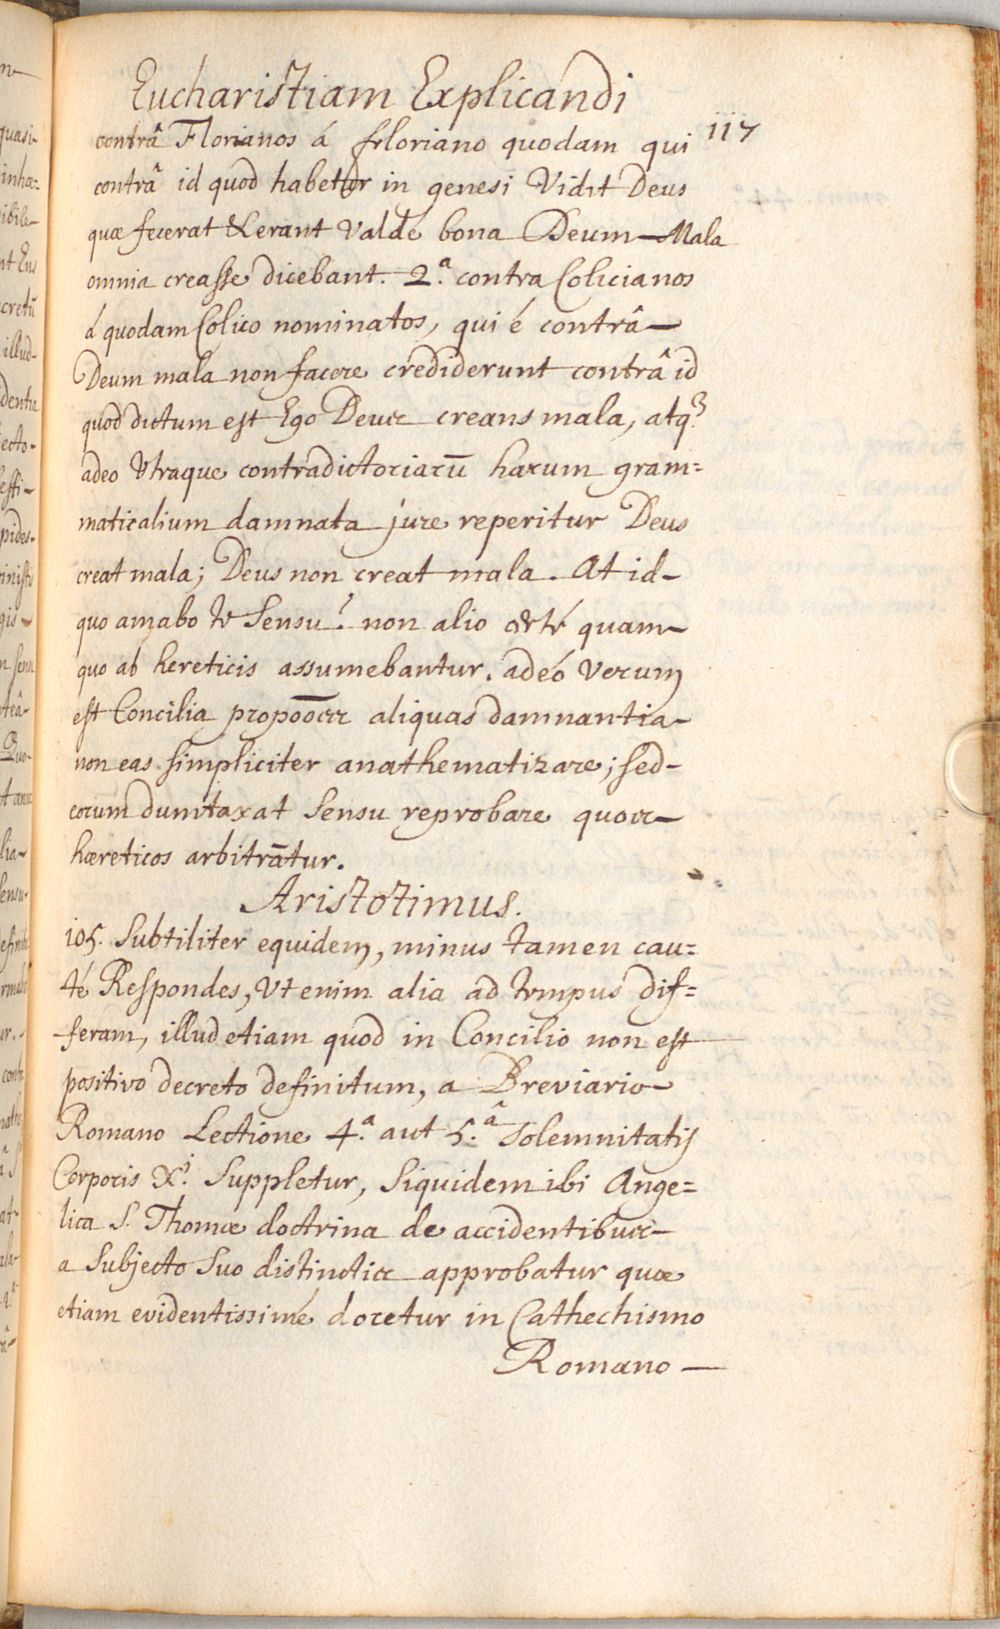 Eucharistiam Explicandi
117
contrâ Florianos á floriano quodam qui
contrâ id quod habetur in genesi Vidit Deus
quæ fecerat & erant valdé bona Deum Mala
omnia creasse dicebant. 2.ª contra Colicianos
á quodam Colico nominatos, qui é contrâ
Deum mala non facere crediderunt contrâ id
quod dictum est Ego Deus creans mala, atq.
adeo Utraque contradictoriarū harum gram=
maticalium damnata jure reperitur Deus
creat mala; Deus non creat mala. At id
quo amabo te Sensu? non alio certé quam
quo ab hereticis assumebantur. adeó verum
est Concilia aliquas damnantia
non eas simpliciter anathematizare; sed
eorum dumtaxat Sensu reprobare quos
hæreticos arbitrātur.
Aristotimus.
105. Subtiliter equidem, minus tamen cau=
té Respondes, Ut enim alia ad tempus dif=
feram, illud etiam quod in Concilio non est
positivo decreto definitum, a Breviario
Romano Lectione 4.ª aut 5.ª Solemnitatis
Corporis Xⁱ. Suppletur, Siquidem ibi Ange=
lica S. Thomæ doctrina de accidentibus
a Subjecto Suo distinctis approbatur quæ
etiam evidentissimé docetur in Cathechismo
Romano